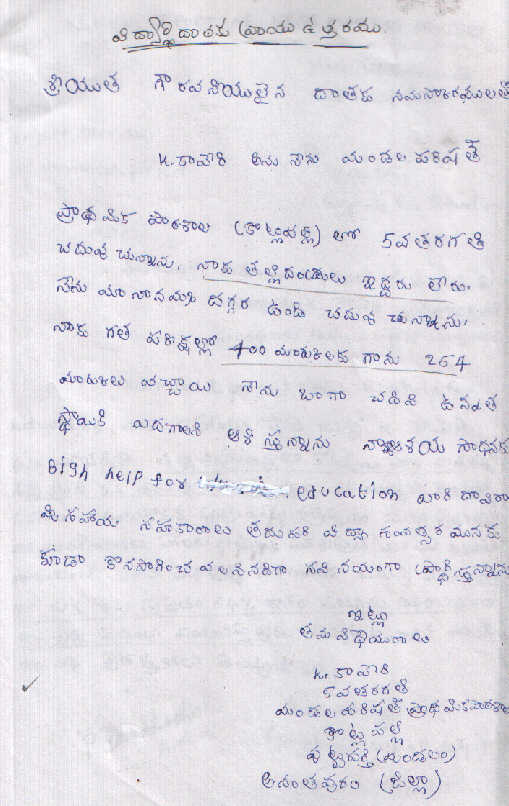 విద్యార్థి దాతకు వ్రాయు ఉత్తరము
శ్రీయుత గౌరవనీయులైన దాతకు నమస్కారములతో
K. కావేరి అను నేను మండల పరిషత్
ప్రాథమిక పాఠశాల (కొట్లపల్లి) లో 5వ తరగతి
చదువు చున్నాను. నాకు తల్లిదండ్రులు ఇద్దరు లేరు.
నేను మా నానమ్మ దగ్గర ఉండి చదువు చున్నాను.
నాకు గత పరీక్షల్లో 400 మార్కులకు గాను 264
మార్కులు వచ్చాయి నేను బాగా చదివి ఉన్నత
స్థాయికి ఎదగాలని ఆశిస్తున్నాను నా ఆశయ సాధనకు
Bigh help for education వారి ద్వారా
మీ సహాయ సహకారాలు తదుపరి విద్యా సంవత్సరమునకు
కూడా కొనసాగించ వలసినదిగా సవినయంగా ప్రార్థిస్తున్నాను
ఇట్లు
తమ విధేయురాలు
K. కావేరి
5వ తరగతి
మండల పరిషత్ ప్రాథమిక పాఠశాల
కొట్లపల్లి
పుట్టపర్తి (మండలం)
అనంతపురం (జిల్లా)